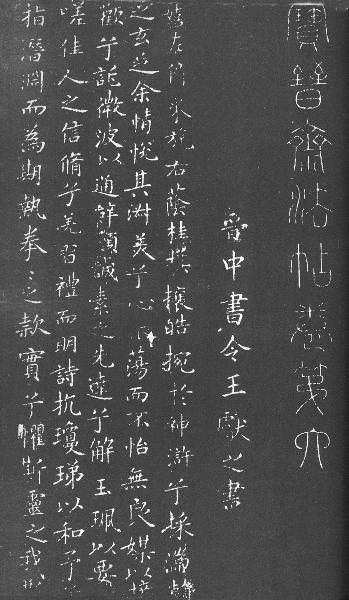 寶晉齋法帖卷第六
晉中書令王獻之書
嬉左倚采旄右蔭桂旗攘皓捥於神滸兮採湍瀨
之玄芝余情悅其淑美兮心振蕩而不怡無良媒以接
歡兮託微波以通辭願誠素之先達兮解玉珮以要
嗟佳人之信脩兮羌習禮而明詩抗瓊珶以和予兮
指潛淵而為期執拳〻之款實兮懼斯靈之我欺